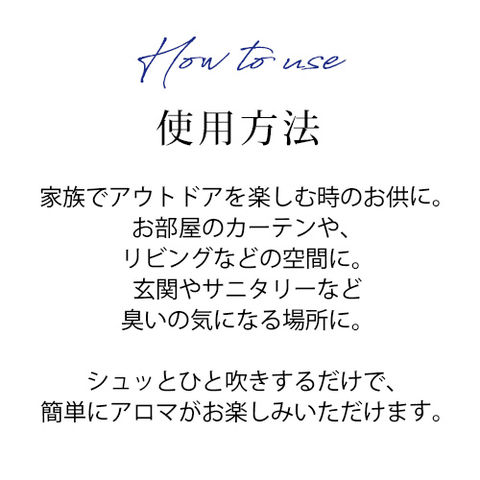 How to use
使用方法
家族でアウトドアを楽しむ時のお供に。
お部屋のカーテンや、
リビングなどの空間に。
玄関やサニタリーなど
臭いの気になる場所に。
シュッとひと吹きするだけで、
簡単にアロマがお楽しみいただけます。